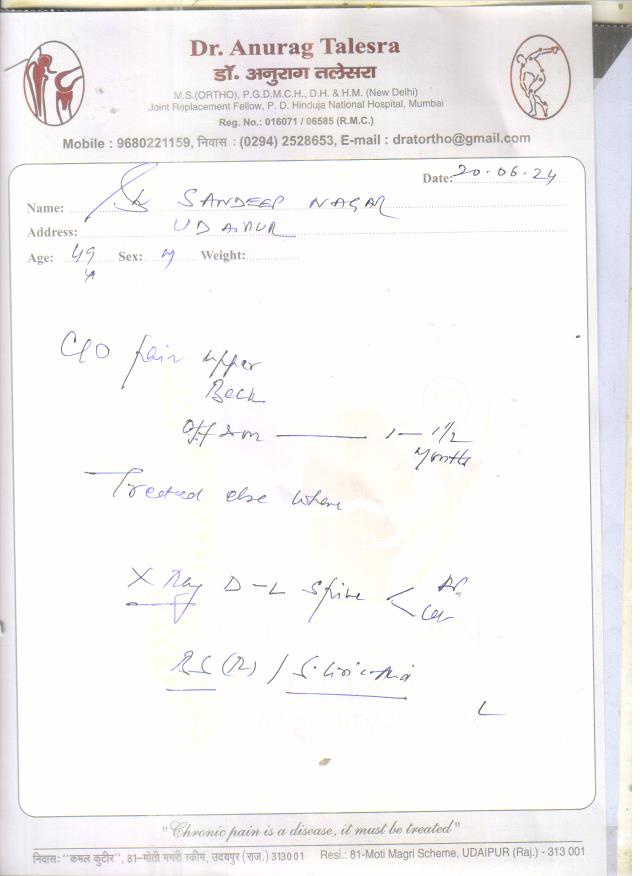 Dr. Anurag Talesra
डॉ. अनुराग तलेसरा
M.S.(ORTHO), P.G.D.M.C.H., D.H. & H.M. (New Delhi)
Joint Replacement Fellow, P. D. Hinduja National Hospital, Mumbai
Reg. No.: 016071 / 06585 (R.M.C.)
Mobile : 9680221159, निवास : (0294) 2528653, E-mail : dratortho@gmail.com
Date: 20-06-24
Name: SANDEEP NAGAR
Address: UDAIPUR
Age: 49 Sex: M Weight:
Y
C/O pain upper
Back
Off & on — 1 — 1 1/2
Months
Treated else where
X Ray D-L Spine < AP
Lat
"Chronic pain is a disease, it must be treated"
निवास: "कमल कुटीर", 81-मोती मगरी स्कीम, उदयपुर (राज.) 313001 Resi.: 81-Moti Magri Scheme, UDAIPUR (Raj.) - 313 001